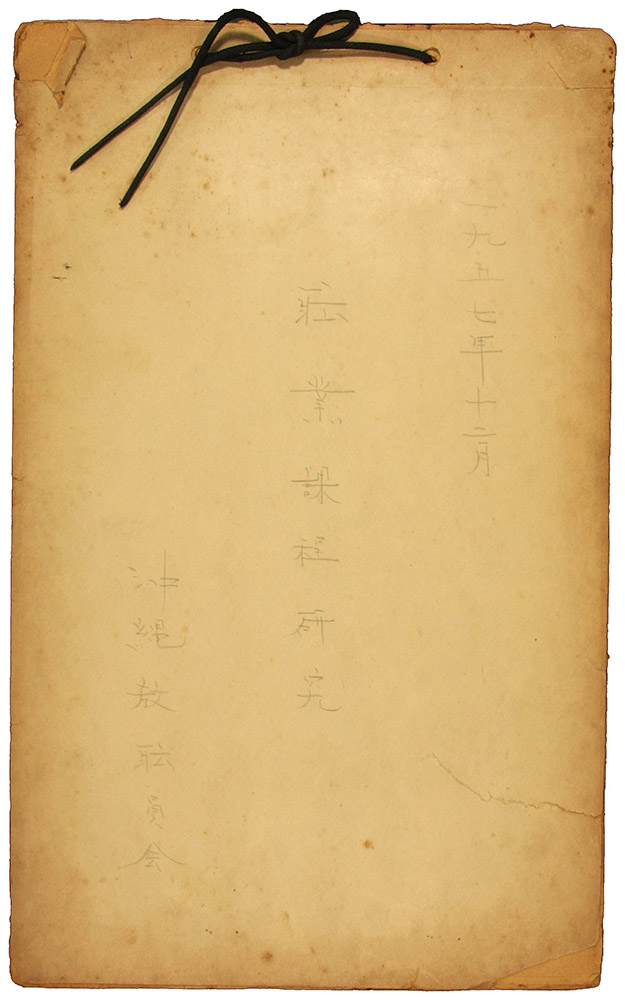 一九五七年十二月
耺業課程研究
沖縄教耺員会